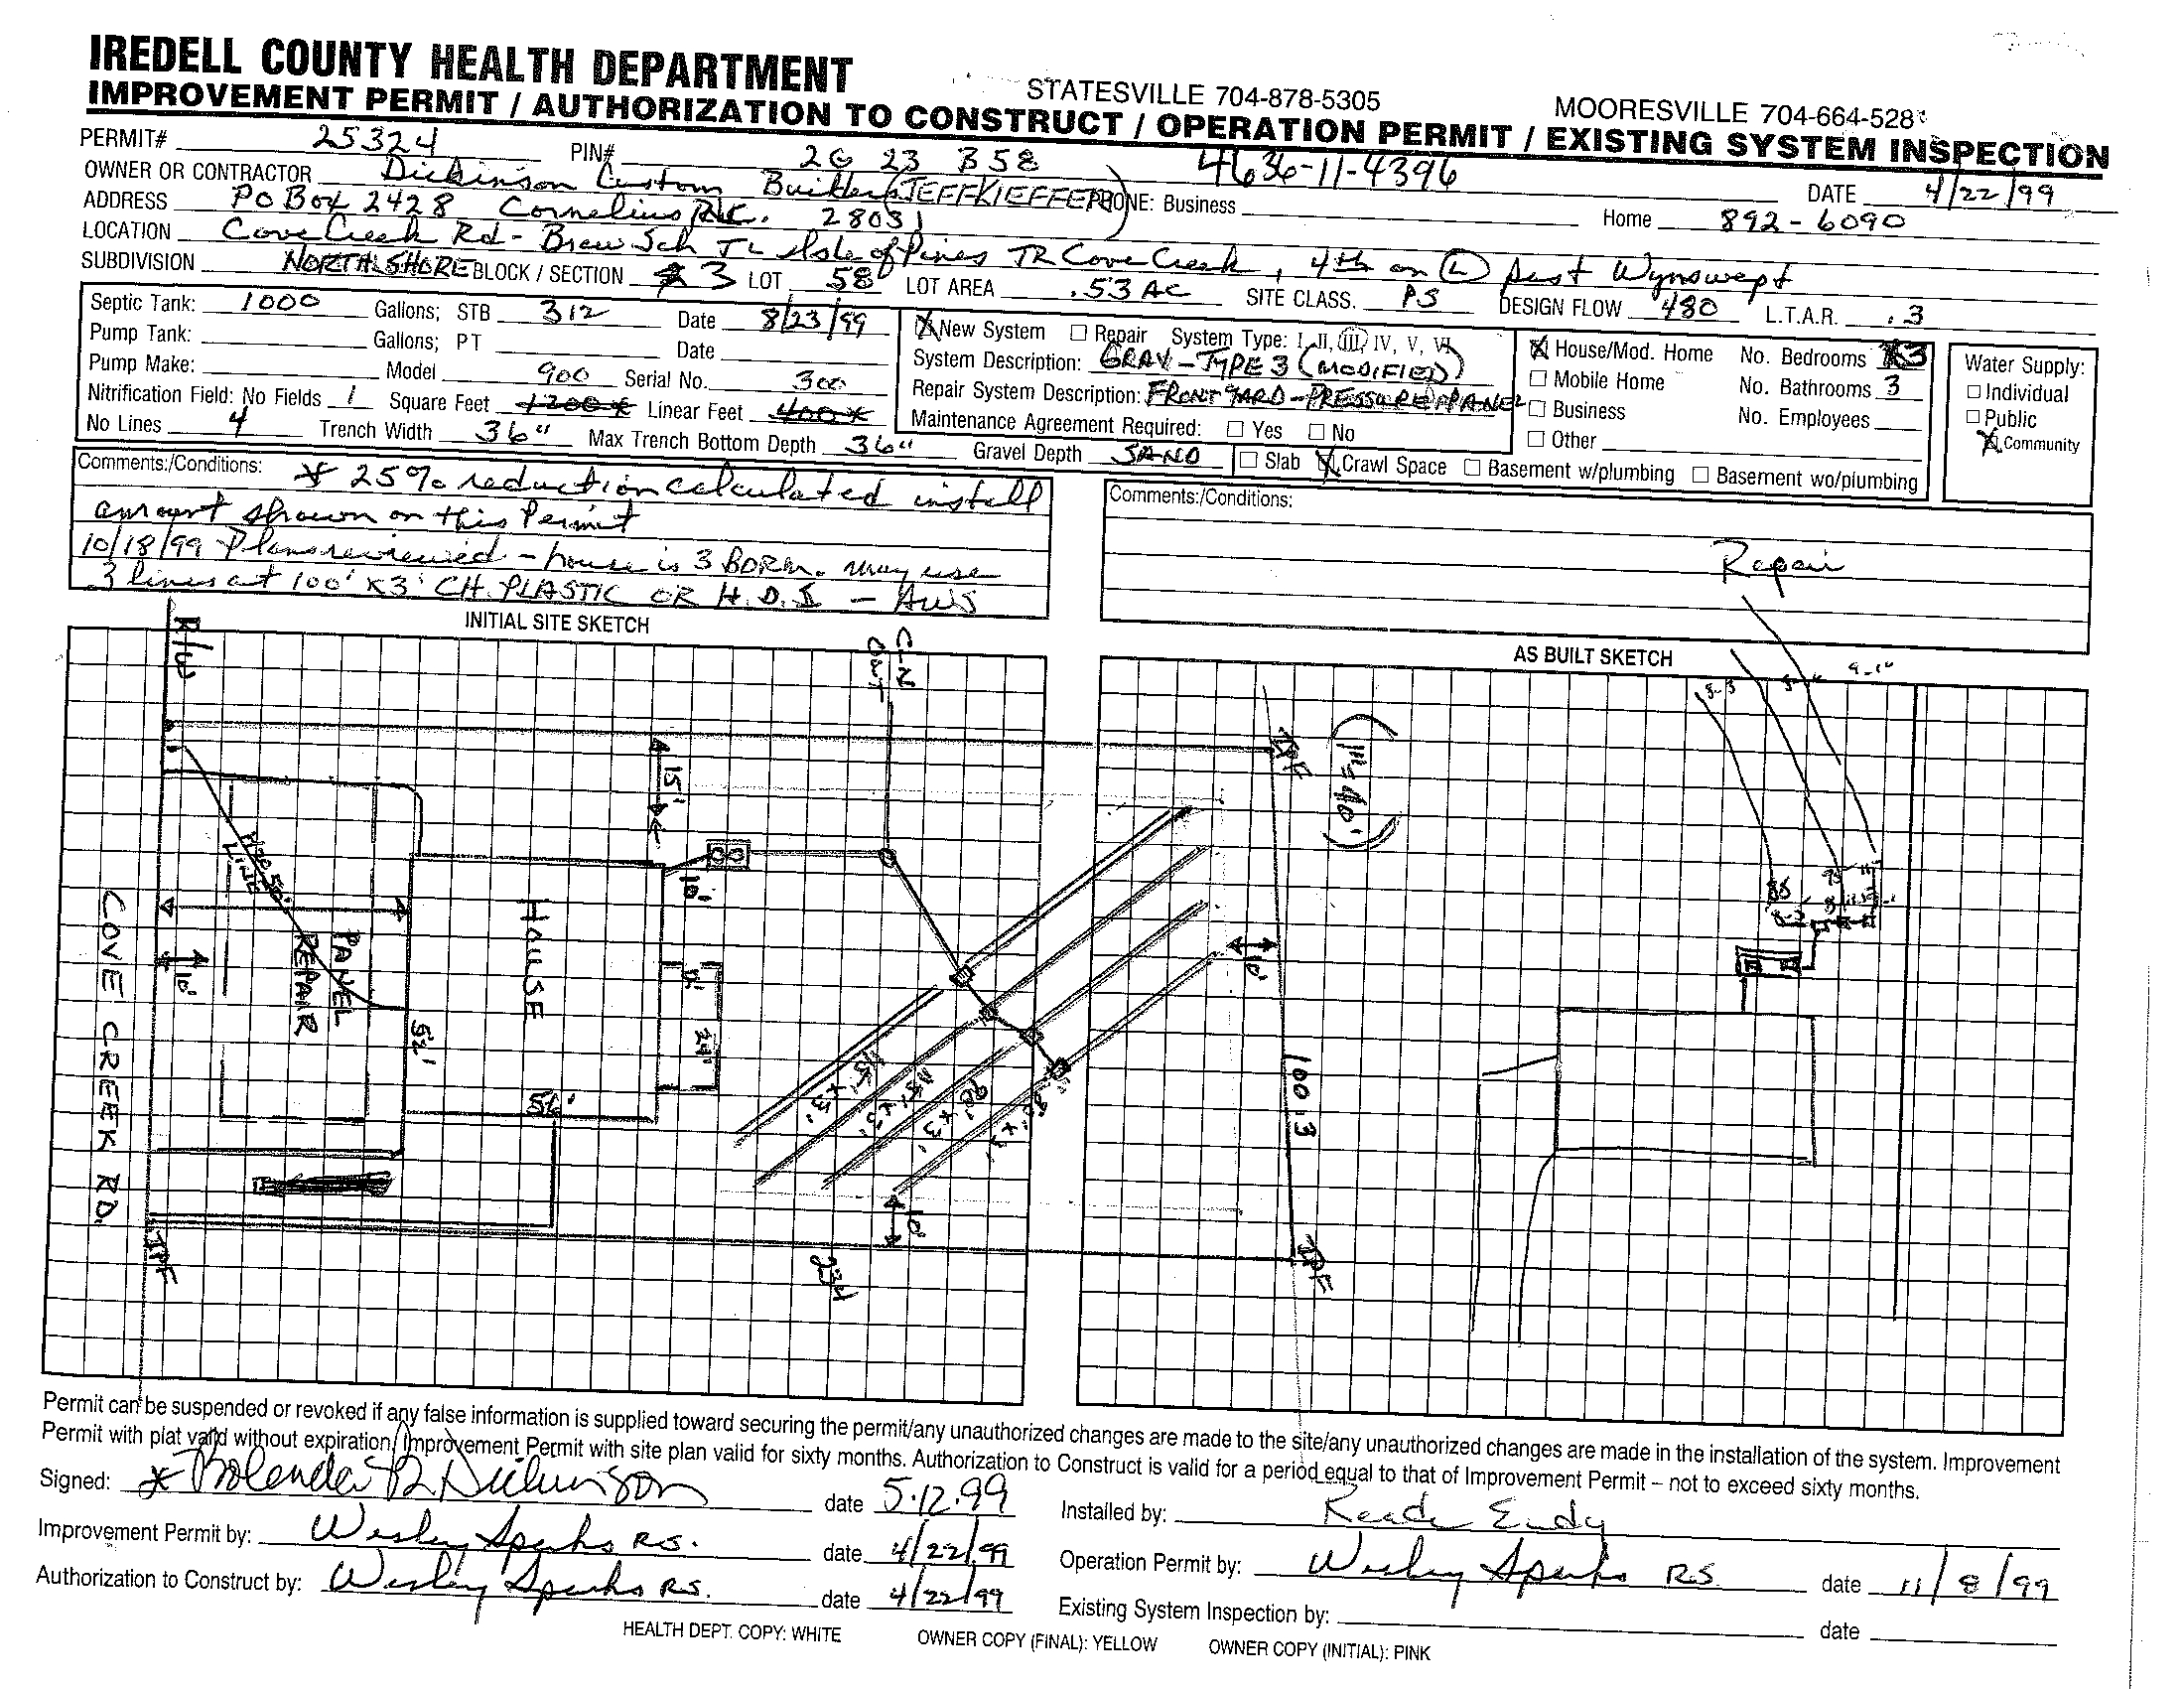 IREDELL COUNTY HEALTH DEPARTMENT
STATESVILLE 704-878-5305 MOORESVILLE 704-664-528
IMPROVEMENT PERMIT / AUTHORIZATION TO CONSTRUCT / OPERATION PERMIT / EXISTING SYSTEM INSPECTION
PERMIT# 25324 PIN# 2G 23 B 58 4636-11-4396
OWNER OR CONTRACTOR Dickinson Custom Builders (JEFF KIEFFER) PHONE: Business DATE 4/22/99
ADDRESS PO Box 2428 Cornelius, N.C. 28031 Home 892-6090
LOCATION Cove Creek Rd - Brawley Sch TL Isle of Pines TR Cove Creek, 4th on (L) past Wynswept
SUBDIVISION NORTH SHORE BLOCK / SECTION 3 LOT 58 LOT AREA .53 AC SITE CLASS. PS DESIGN FLOW 480 L.T.A.R. .3
Septic Tank: 1000 Gallons; STB 312 Date 8/23/99
Pump Tank: Gallons; PT Date
Pump Make: Model 900 Serial No. 300
Nitrification Field: No Fields 1 Square Feet 1200 x Linear Feet 400 x
No Lines 4 Trench Width 36" Max Trench Bottom Depth 36" Gravel Depth SAND
X New System Repair System Type: I, II, III, IV, V, VI
System Description: GRAV-TYPE 3 (MODIFIED)
Repair System Description: FRONT YARD-PRESSURE PANEL
Maintenance Agreement Required: Yes No
Slab X Crawl Space Basement w/plumbing Basement wo/plumbing
X House/Mod. Home No. Bedrooms 3
Mobile Home No. Bathrooms 3
Business No. Employees
Other
Water Supply:
Individual
Public
X Community
Comments:/Conditions: * 25% reduction calculated install
amount shown on this Permit
10/18/99 Plans reviewed - house is 3 BDRM. may use
3 lines at 100' x 3' CH. PLASTIC OR H.D.I - AWS
Comments:/Conditions:
Repair
INITIAL SITE SKETCH
R/W
CLN
OUT
15'
10'
H2O
LINE
50'
COVE CREEK RD.
10'
PANEL
REPAIR
HOUSE
52'
56'
24'
115' x 3'
115' x 3'
90' x 3'
80' x 3'
10'
234
IPF
AS BUILT SKETCH
IPF
(1"=40')
10'
100.3
IPF
Permit can be suspended or revoked if any false information is supplied toward securing the permit/any unauthorized changes are made to the site/any unauthorized changes are made in the installation of the system. Improvement
Permit with plat valid without expiration, Improvement Permit with site plan valid for sixty months. Authorization to Construct is valid for a period equal to that of Improvement Permit – not to exceed sixty months.
Signed: x Dickinson date 5.12.99 Installed by:
Improvement Permit by: Wesley Sparks R.S. date 4/22/99 Operation Permit by: Wesley Sparks R.S. date 11/8/99
Authorization to Construct by: Wesley Sparks R.S. date 4/22/99 Existing System Inspection by: date
HEALTH DEPT. COPY: WHITE OWNER COPY (FINAL): YELLOW OWNER COPY (INITIAL): PINK